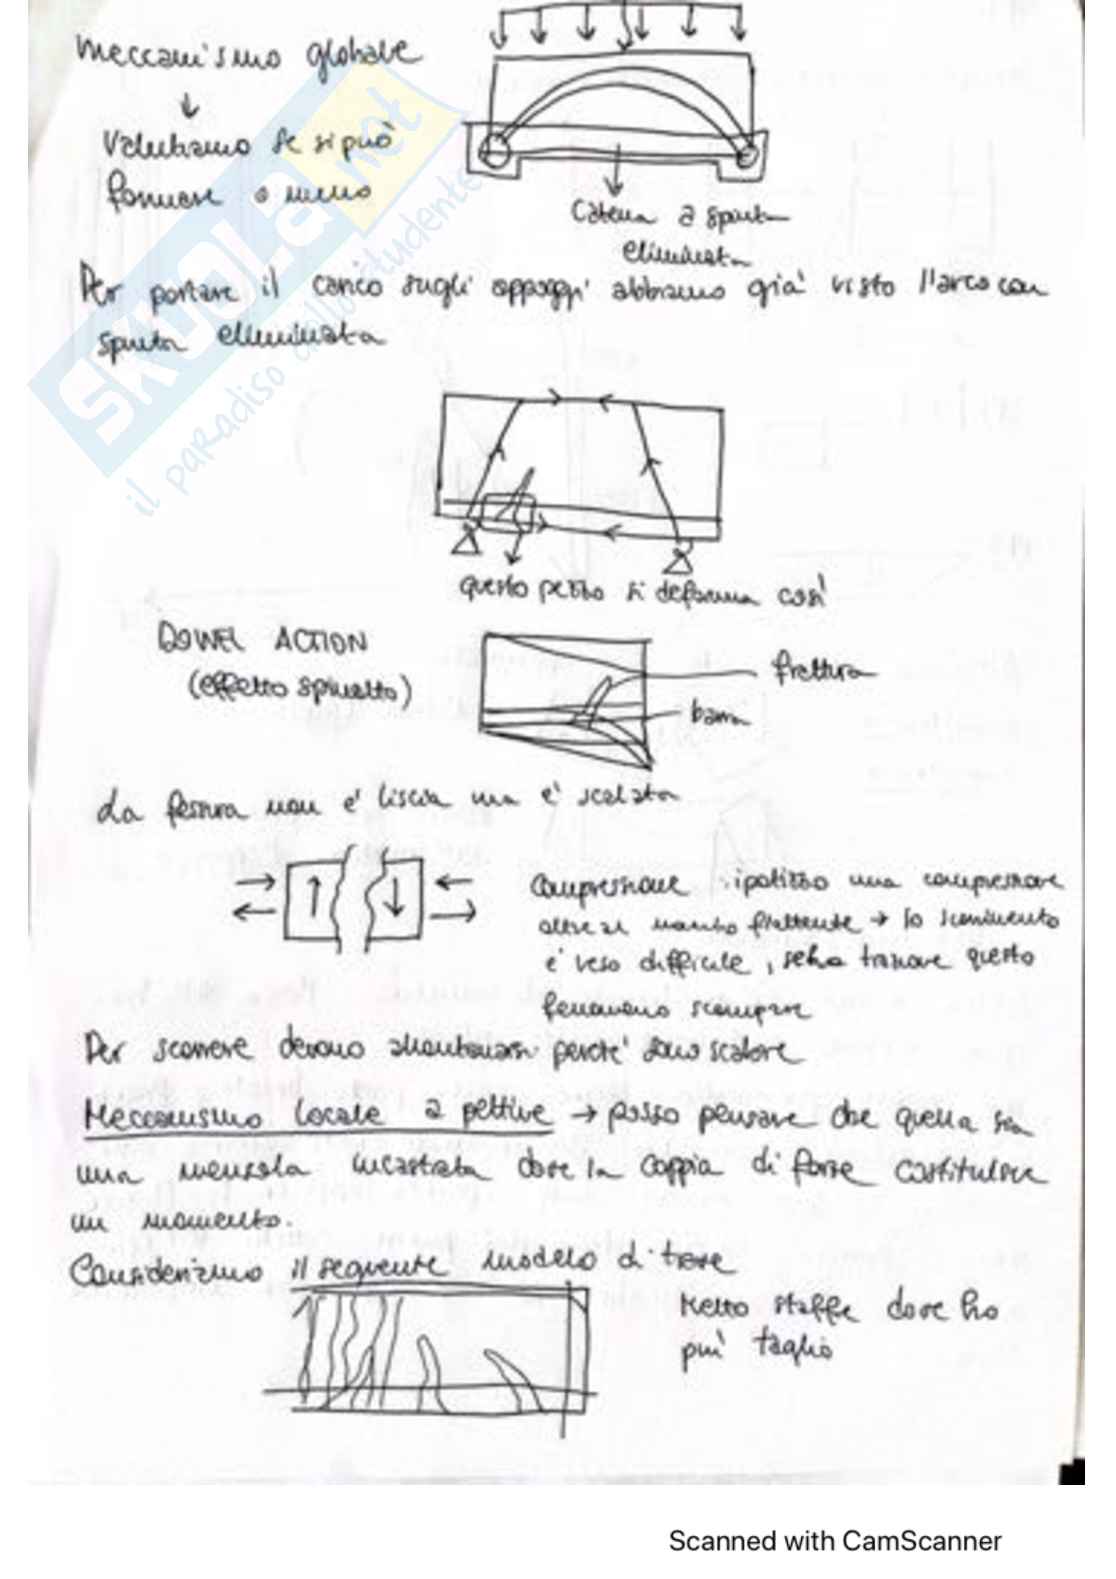 meccanismo globale
↓
Valutiamo se si può
formare o meno
Catena a spinta
eliminata
Per portare il carico sugli appoggi abbiamo già visto l'arco con
spinta eliminata
questo pezzo si deforma così
DOWEL ACTION
(effetto spinotto)
frattura
barra
La fessura non è liscia ma è scalata
Compressione ipotizzo una compressione
oltre al momento flettente → lo scorrimento
è reso difficile, senza trazione questo
fenomeno scompare
Per scorrere devono allontanarsi perché sono scalate
Meccanismo locale a pettine → posso pensare che quella sia
una mensola incastrata dove la coppia di forze costituisce
un momento.
Consideriamo il seguente modello di trave
Metto staffe dove ho
più taglio
SKUOLA.net
il paradiso dello studente
Scanned with CamScanner